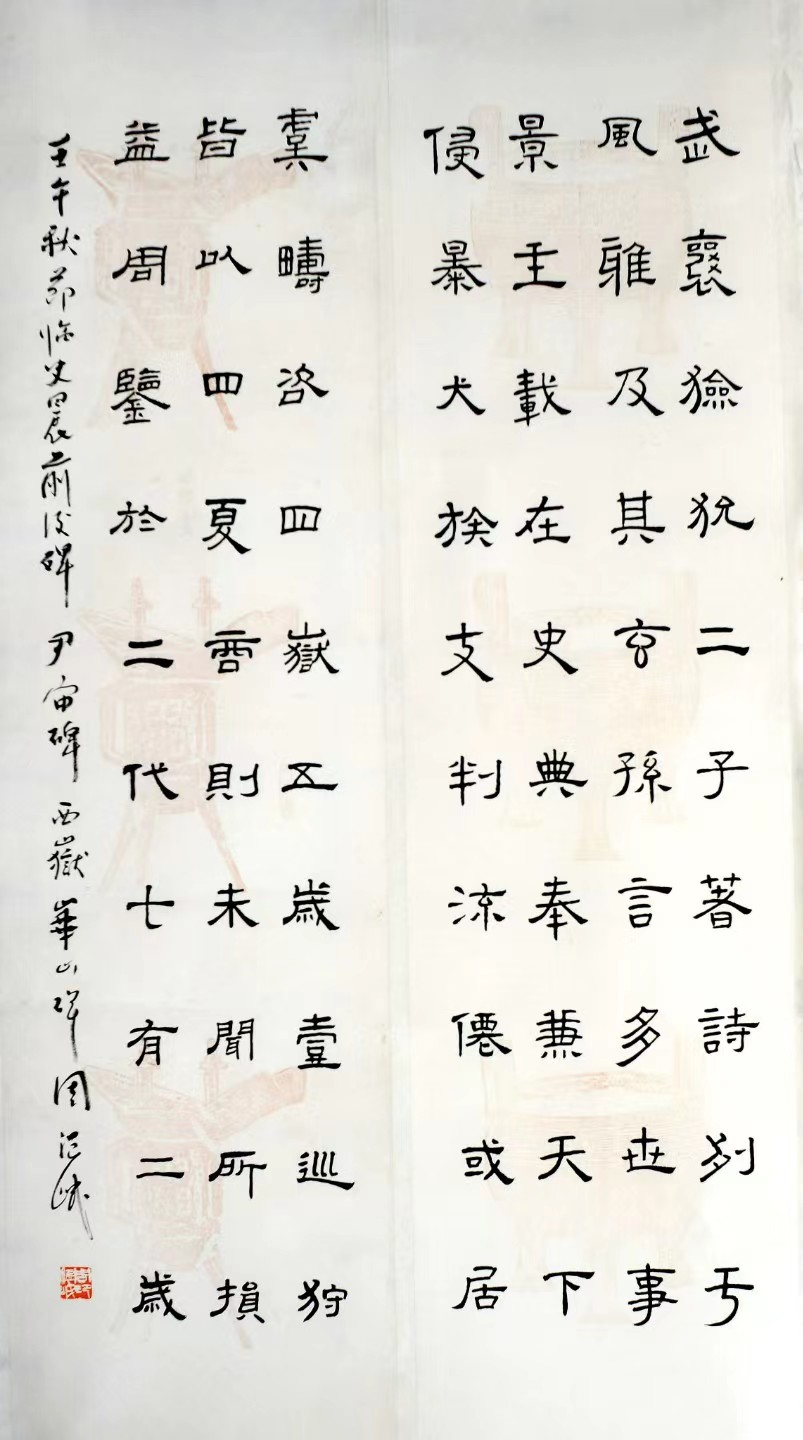 武襄獫狁二子著詩列于
風雅及其玄孫言多世事
景王載在史典奉兼天下
侵暴大族支判流僊或居
虞疇咨四嶽五歲壹巡狩
皆以四 夏商則未聞所損
益周鑒於二代十有二歲
壬午秋節臨史晨前後碑 尹宙碑 西嶽華山碑 周